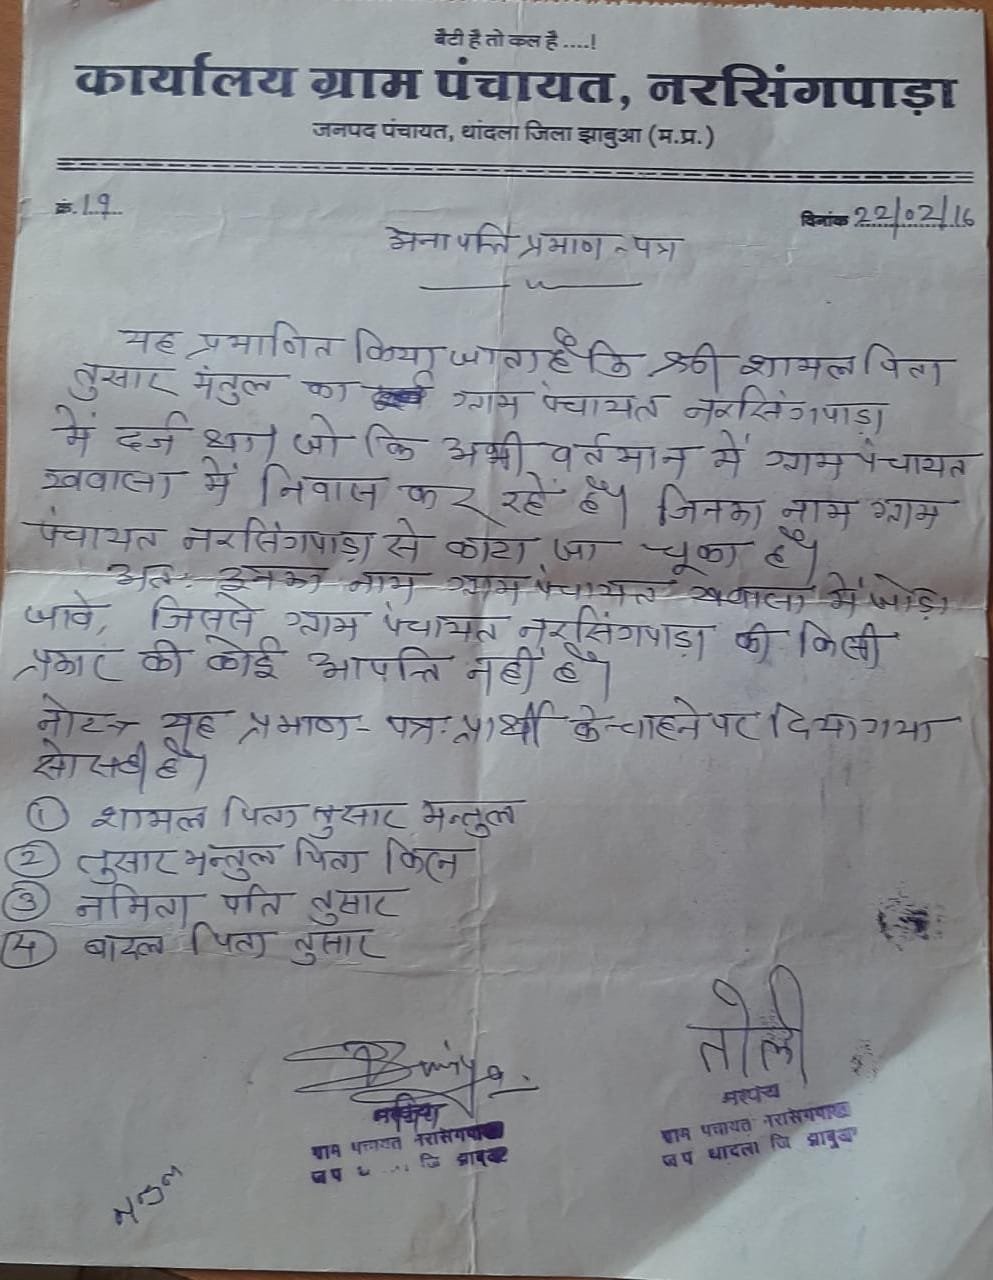 बेटी है तो कल है....!
कार्यालय ग्राम पंचायत, नरसिंगपाड़ा
जनपद पंचायत, थांदला जिला झाबुआ (म.प्र.)
क्रं. 19
दिनांक 22/02/16
अनापत्ति प्रमाण-पत्र
यह प्रमाणित किया जाता है कि श्री शामल पिता
तुसार मंतुल का ग्राम पंचायत नरसिंगपाड़ा
में दर्ज था। जो कि अभी वर्तमान में ग्राम पंचायत
खवासा में निवास कर रहें है। जिनका नाम ग्राम
पंचायत नरसिंगपाड़ा से काटा जा चूका है।
अतः इनका नाम ग्राम पंचायत खवासा में जोड़ा
जावे, जिससे ग्राम पंचायत नरसिंगपाड़ा की किसी
प्रकार की कोई आपत्ति नहीं है।
नोट→ यह प्रमाण-पत्र प्रार्थी के चाहने पर दिया गया
सो सही है।
① शामल पिता तुसार मन्तुल
② तुसार मन्तुल पिता
③ नमिता पति तुसार
④ बादल पिता तुसार
तोली
सरपंच
ग्राम पंचायत नरसिंगपाड़ा
ग्राम पंचायत नरसिंगपाड़ा
ज प थांदला जि झाबुआ
ज प जि झाबुआ